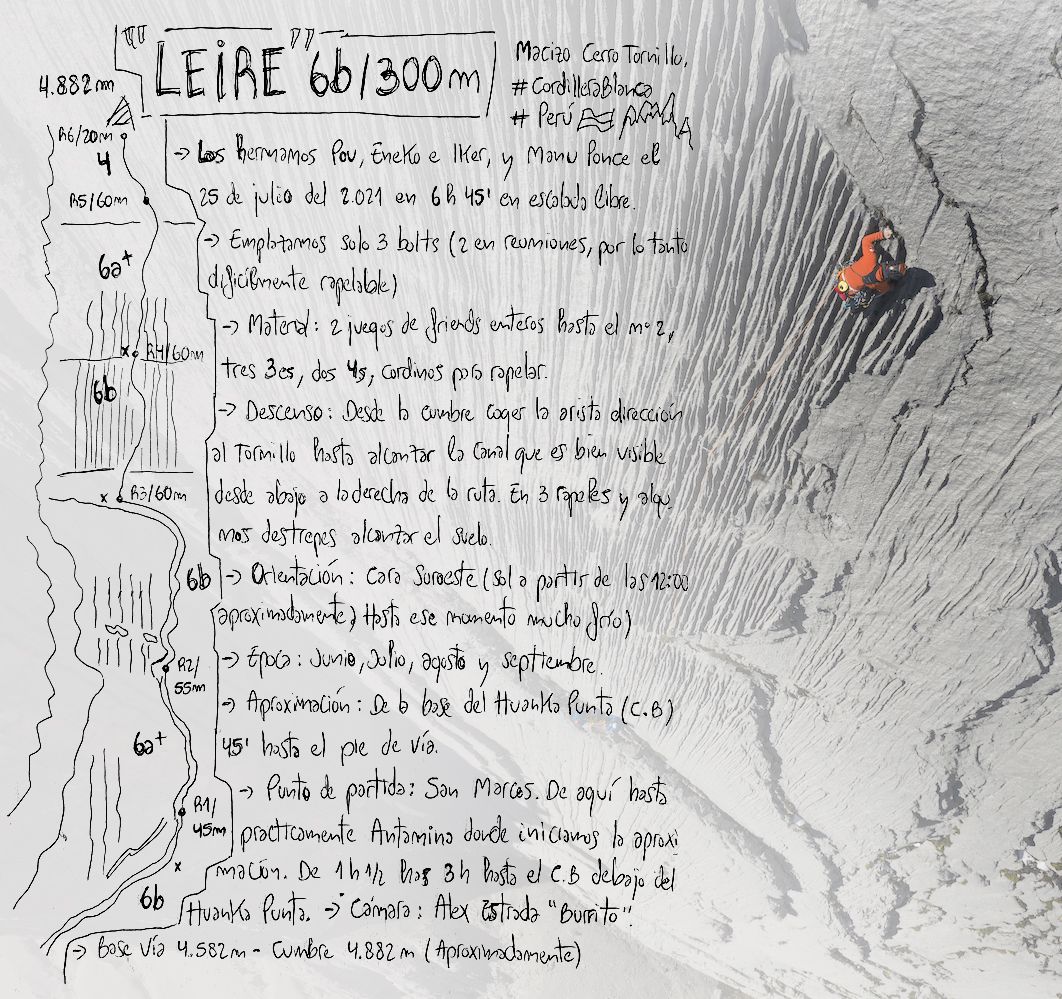 "LEIRE" 6b/300m
Macizo Cerro Tornillo,
#CordilleraBlanca
# Perú
4.882m
R6/20m
4
R5/60m
6a+
R4/60m
6b
R3/60m
6b
R2/
55m
6a+
R1/
45m
6b
→ Los hermanos Pou, Eneko e Iker, y Manu Ponce el
25 de julio del 2.021 en 6h 45' en escalada libre.
→ Emplatamos solo 3 bolts (2 en reuniones, por lo tanto
dificílmente rapelable)
→ Material: 2 juegos de friends enteros hasta el nº 2,
tres 3es, dos 4s, cordinos para rapelar.
→ Descenso: Desde la cumbre coger la arista dirección
al Tornillo hasta alcanzar la canal que es bien visible
desde abajo a la derecha de la ruta. En 3 rapeles y algu
nos destrepes alcanzar el suelo.
→ Orientación: Cara Suroeste (sol a partir de las 12:00
aproximadamente) Hasta ese momento mucho frío)
→ Época: Junio, Julio, agosto y septtiembre.
→ Aproximación: De la base del Huanka Punta (C.B)
45' hasta el pie de vía.
→ Punto de partida: San Marcos. De aquí hasta
practicamente Antamina donde iniciamos la aproxi
mación. De 1h 1/2 has 3h hasta el C.B debajo del
Huanka Punta. → Cámara: Alex Estrada "Burrito".
→ Base Vía 4.582m - Cumbre 4.882 m (Aproximadamente)